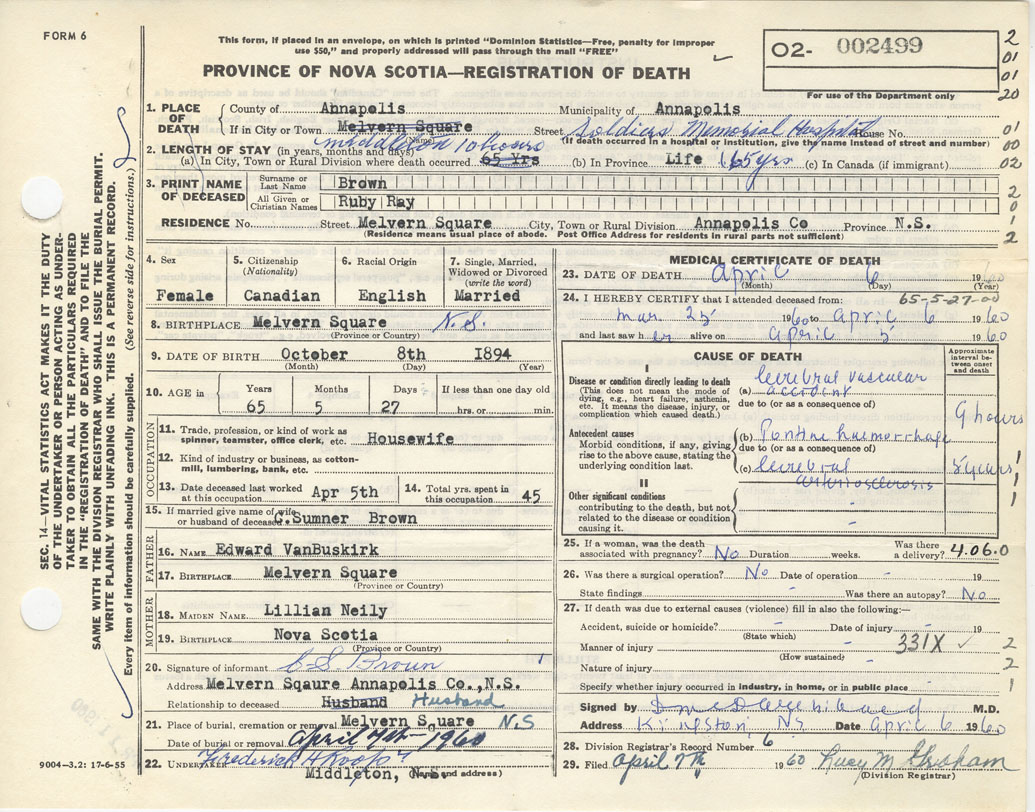 FORM 6
This form, if placed in an envelope, on which is printed "Dominion Statistics—Free, penalty for improper
use $50," and properly addressed will pass through the mail "FREE"
PROVINCE OF NOVA SCOTIA—REGISTRATION OF DEATH
O2- 002499
For use of the Department only
2
01
01
20
SEC. 14—VITAL STATISTICS ACT MAKES IT THE DUTY
OF THE UNDERTAKER OR PERSON ACTING AS UNDER-
TAKER TO OBTAIN ALL THE PARTICULARS REQUIRED
IN THE "REGISTRATION OF DEATH" AND TO FILE THE
SAME WITH THE DIVISION REGISTRAR WHO SHALL ISSUE THE BURIAL PERMIT.
WRITE PLAINLY WITH UNFADING INK. THIS IS A PERMANENT RECORD.
Every item of information should be carefully supplied. (See reverse side for instructions.)
1. PLACE OF DEATH
County of Annapolis Municipality of Annapolis
If in City or Town Melvern Square Street Soldiers Memorial Hospital House No. 01
Middleton (Name) (If death occurred in a hospital or institution, give the name instead of street and number) 00
2. LENGTH OF STAY (in years, months and days)
(a) In City, Town or Rural Division where death occurred 65 Yrs (b) In Province Life (65 yrs (c) In Canada (if immigrant) 02
3. PRINT NAME OF DECEASED
Surname or Last Name Brown 2
All Given or Christian Names Ruby Ray 0
RESIDENCE No. Street Melvern Square City, Town or Rural Division Annapolis Co Province N.S. 1
(Residence means usual place of abode. Post Office Address for residents in rural parts not sufficient) 2
4. Sex
Female
5. Citizenship
(Nationality)
Canadian
6. Racial Origin
English
7. Single, Married,
Widowed or Divorced
(write the word)
Married
8. BIRTHPLACE Melvern Square N.S.
(Province or Country)
9. DATE OF BIRTH October 8th 1894
(Month) (Day) (Year)
10. AGE in
Years Months Days If less than one day old
65 5 27 hrs. or min.
OCCUPATION
11. Trade, profession, or kind of work as
spinner, teamster, office clerk, etc. Housewife
12. Kind of industry or business, as cotton-
mill, lumbering, bank, etc.
13. Date deceased last worked
at this occupation Apr 5th
14. Total yrs. spent in
this occupation 45
15. If married give name of wife
or husband of deceased Sumner Brown
FATHER
16. NAME Edward VanBuskirk
17. BIRTHPLACE Melvern Square
(Province or Country)
MOTHER
18. MAIDEN NAME Lillian Neily
19. BIRTHPLACE Nova Scotia
(Province or Country)
20. Signature of informant C.S. Brown
Address Melvern Sqaure Annapolis Co.,N.S.
Relationship to deceased Husband Husband
21. Place of burial, cremation or removal Melvern Square N.S
Date of burial or removal April 7th 1960
22. UNDERTAKER Frederick H Roop
Middleton, N.S. (Name and address)
9004-3.2: 17-6-55
MEDICAL CERTIFICATE OF DEATH
23. DATE OF DEATH April 6 1960
(Month) (Day) (Year)
24. I HEREBY CERTIFY that I attended deceased from: 65-5-27-00
Mar. 25 1960 to April 6 1960
and last saw her alive on April 5 1960
CAUSE OF DEATH
Approximate
interval be-
tween onset
and death
I
Disease or condition directly leading to death
(This does not mean the mode of
dying, e.g., heart failure, asthenia,
etc. It means the disease, injury, or
complication which caused death.)
(a) Cerebral vascular
accident
due to (or as a consequence of)
9 hours
Antecedent causes
Morbid conditions, if any, giving
rise to the above cause, stating the
underlying condition last.
(b) Pontine haemorrhage
due to (or as a consequence of)
(c) Cerebral
arteriosclerosis
5 years
II
Other significant conditions
contributing to the death, but not
related to the disease or condition
causing it.
25. If a woman, was the death
associated with pregnancy? No Duration weeks. Was there
a delivery? 4.06.0
26. Was there a surgical operation? No Date of operation - 19
State findings - Was there an autopsy? No
27. If death was due to external causes (violence) fill in also the following:—
Accident, suicide or homicide? - Date of injury - 19
(State which)
Manner of injury - 331X 2
(How sustained)
Nature of injury - 2
Specify whether injury occurred in industry, in home, or in public place - 1
Signed by M.D.
Address Kingston, NS Date April 6 1960
28. Division Registrar's Record Number 6
29. Filed April 7th 1960 Lucy M Grisham
(Division Registrar)